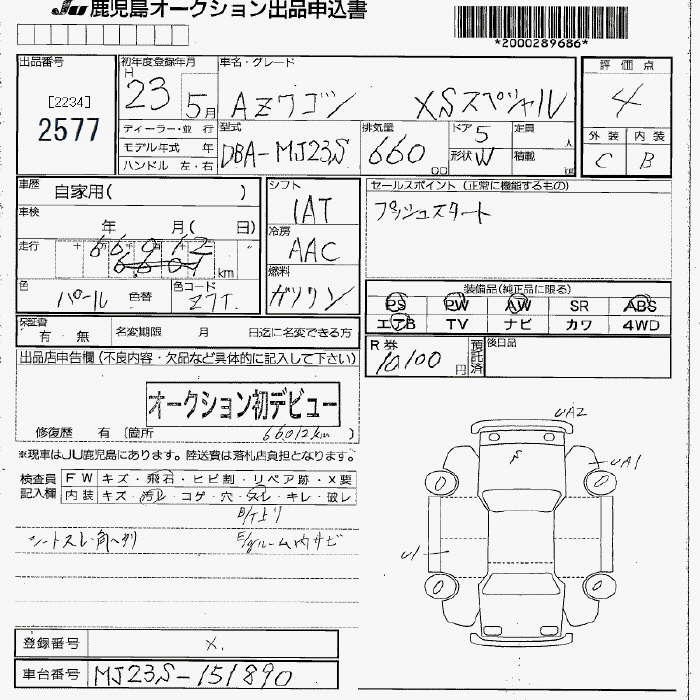 JU 鹿児島オークション出品申込書
*2000289686*
出品番号
[2234]
2577
初年度登録年月
H
23 5月
ディーラー・並 行
モデル年式 年
ハンドル 左・右
車名・グレード
AZワゴン XSスペシャル
型式
DBA-MJ23S
排気量
660
cc
ドア 5
形状 W
定員
人
積載
評価点
4
外装 内装
C B
車歴 自家用( )
車検
年 月( 日)
走行
66012
km
色
パール 色替
色コード
Z7T
シフト
IAT
冷房
AAC
燃料
ガソリン
セールスポイント (正常に機能するもの)
プッシュスタート
装備品(純正品に限る)
PS PW AW SR ABS
エアB TV ナビ カワ 4WD
R券
10100
円
預託済
後日品
保証書
有 無
名変期限 月 日迄に名変できる方
出品店申告欄 (不良内容・欠品など具体的に記入して下さい)
オークション初デビュー
修復歴 有 (箇所 )
66012km
※現車はJU鹿児島にあります。陸送費は落札店負担となります。
検査員
記入欄
FW キズ・飛石・ヒビ割・リペア跡・X要
内装 キズ・汚れ・コゲ・穴・スレ・キレ・破レ
シートスレ・角ヘタリ
E/gルーム内サビ
UA2
UA1
U1
登録番号 X.
車台番号 MJ23S-151890